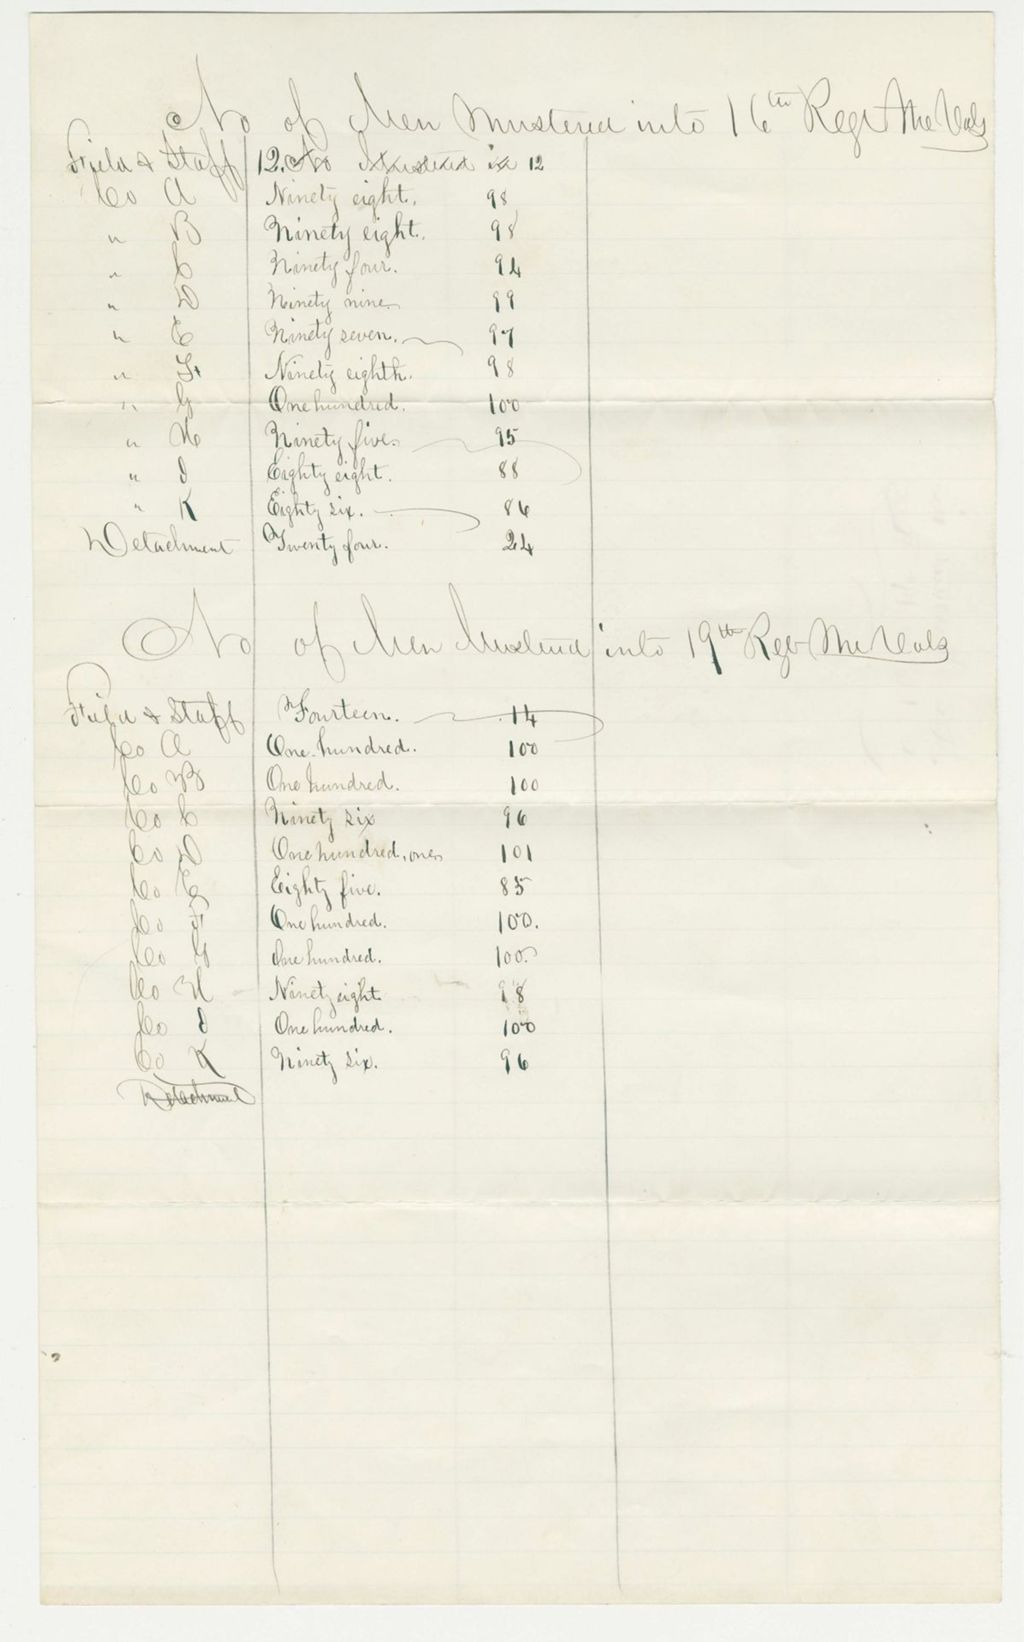 No of Men Mustered into 16th Regt Me Vols
Field & Staff 12. No Mustered in 12
Co A Ninety eight. 98
" B Ninety eight. 98
" C Ninety four. 94
" D Ninety nine 99
" E Ninety seven. 97
" F Ninety eighth. 98
" G One hundred. 100
" H Ninety five. 95
" I Eighty eight. 88
" K Eighty six. 86
Detachment Twenty four. 24
No of Men Mustered into 19th Regt Me Vols
Field & Staff Fourteen. 14
Co A One hundred. 100
Co B One hundred. 100
Co C Ninety six 96
Co D One hundred, one 101
Co E Eighty five. 85
Co F One hundred. 100.
Co G One hundred. 100.
Co H Ninety eight 98
Co I One hundred. 100
Co K Ninety six. 96
Detachment